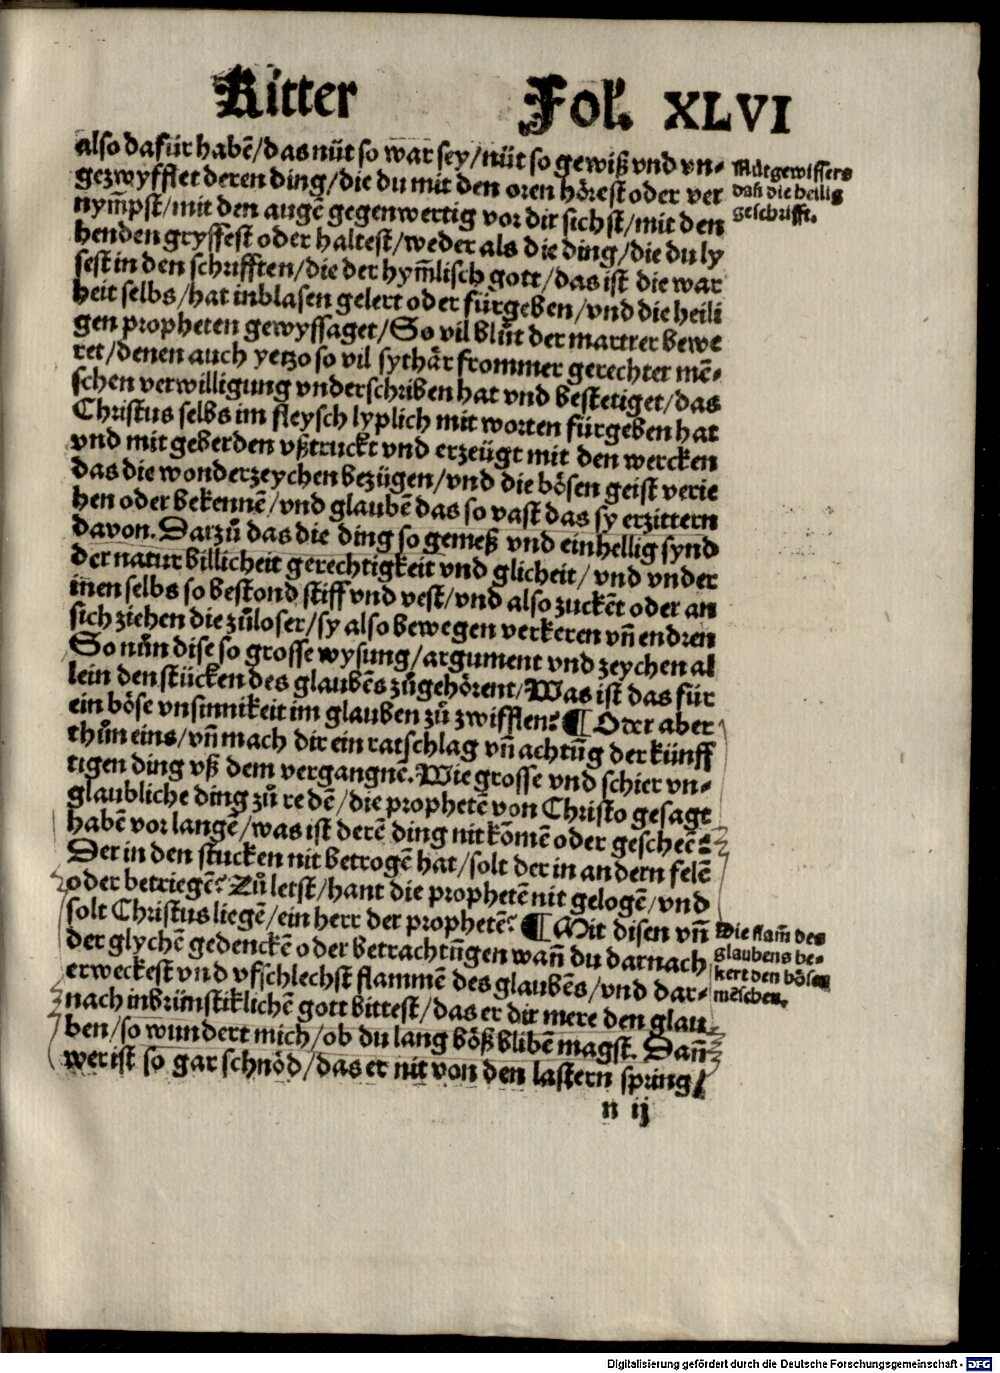 Ritter Fol. XLVI
also dafür habē/das nüt so war sey/nüt so gewiß vnd vn-
gezwyfflet deren ding/die du mit den oren hörest oder ver
nym̄pst/mit den augē gegenwertig vor dir sichst/mit den
henden gryffest oder haltest/weder als die ding/die du ly
sest in den schrifften/die der hym̄lisch gott/das ist die war
heit selbs/hat inblasen gelert oder fürgeben/vnd die heili
gen propheten gewyssaget/So vil blůt der martrer bewe
ret/denen auch yetzo so vil sythär frommer gerechter mē-
schen verwilligung vnderschriben hat vnd bestetiget/das
Christus selbs im fleysch lyplich mit worten fürgeben hat
vnd mit geberden vßtruckt vnd erzeügt mit den wercken
das die wonderzeychen bezügen/vnd die bösen geist verie
hen oder bekennē/vnd glaubē das so vast das sy erzittern
davon. Darzů das die ding so gemeß vnd einhellig synd
der natur billicheit gerechtigkeit vnd glicheit/vnd vnder
inen selbs so bestond stiff vnd vest/vnd also zuckēt oder an
sich ziehen die zůloser/sy also bewegen verkeren vn̄ endren
So nůn dise so grosse wysung/argument vnd zeychen al
lein den stücken des glaubēs zůgehörent/Was ist das für
ein böse vnsinnikeit im glauben zů zwifflen? ¶ Oder aber
thůn eins/vn̄ mach dir ein ratschlag vn̄ achtūg der künff
tigen ding vß dem vergangnē. Wie grosse vnd schier vn-
glaubliche ding zů redē/die prophetē von Christo gesagt
habē vor langē/was ist derē ding nit kōmē oder gescheē?
Der in den stucken nit betrogē hat/solt der in andern felē
oder betriegē? Zů letst/hant die prophetē nit gelogē/vnd
solt Christus liegē/ein herr der prophetē? ¶ Mit disen vn̄
der glychē gedenckē oder betrachtūgen wan̄ du darnach
erweckest vnd vfschlechst flammē des glaubēs/vnd dar-
nach inbrünstiklichē gott bittest/das er dir mere den glau
ben/so wundert mich/ob du lang böß blibē magst. Dan̄
wer ist so gar schnöd/das er nit von den lastern spring/
n ij
Nüt gewissers
dan̄ die heilig
geschrifft.
Die flam̄ des
glaubens be-
kert den bösen
mēschen.
Digitalisierung gefördert durch die Deutsche Forschungsgemeinschaft - DFG